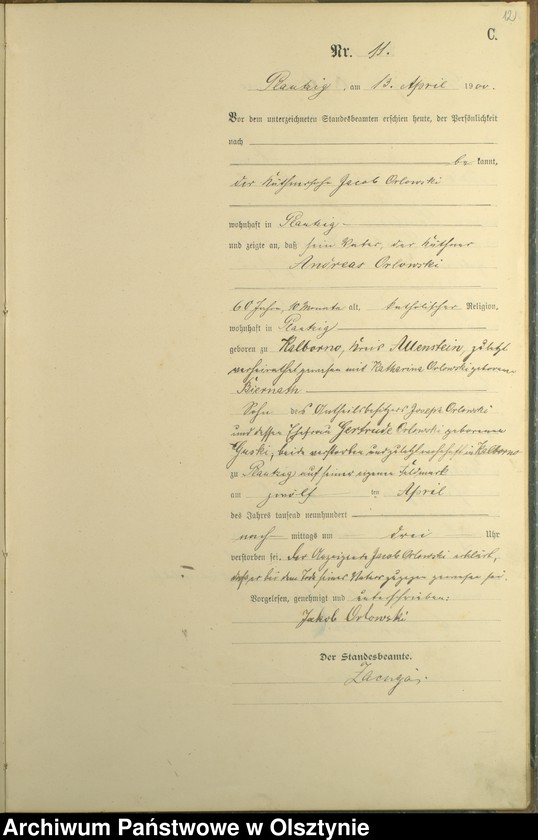 C.
Nr. 11.
Plautzig, am 13. April 1900.
Vor dem unterzeichneten Standesbeamten erschien heute, der Persönlichkeit
nach
be kannt,
der Käthnersohn Jacob Orlowski
wohnhaft in Plautzig
und zeigte an, daß sein Vater, der Käthner
Andreas Orlowski
60 Jahre, 10 Monate alt, katholischer Religion,
wohnhaft in Plautzig
geboren zu Kalborno, Kreis Allenstein, zuletzt
verheirathet gewesen mit Katharina Orlowski geborene
Biernath
Sohn des Antheilsbesitzers Joseph Orlowski
und dessen Ehefrau Gertrude Orlowski geborenen
beide verstorben und zuletzt wohnhaft in Kalborno
zu Plautzig auf seiner eigenen Feldmark
am zwölf ten April
des Jahres tausend neunhundert
nach mittags um drei Uhr
verstorben sei. Der Anzeigende Jacob Orlowski erklärt,
daß er bei dem Tode seines Vaters zugegen gewesen sei.
Vorgelesen, genehmigt und unterschrieben:
Jakob Orlowski
Der Standesbeamte.
Archiwum Państwowe w Olsztynie